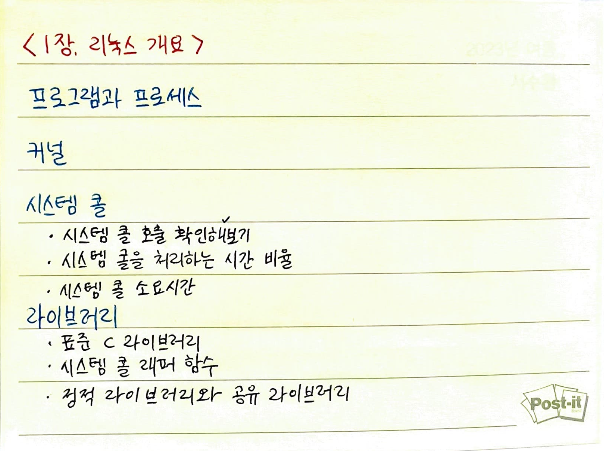 <1장. 리눅스 개요>
프로그램과 프로세스
커널
시스템 콜
· 시스템 콜 호출 확인해보기
· 시스템 콜을 처리하는 시간 비율
· 시스템 콜 소요시간
라이브러리
· 표준 C 라이브러리
· 시스템 콜 래퍼 함수
· 정적 라이브러리와 공유 라이브러리
Post-it